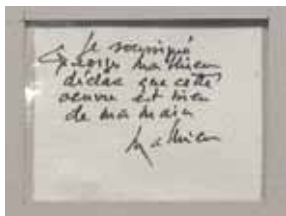 Je soussigné
Georges Mathieu
déclare que cette
oeuvre est bien
de ma main
Mathieu